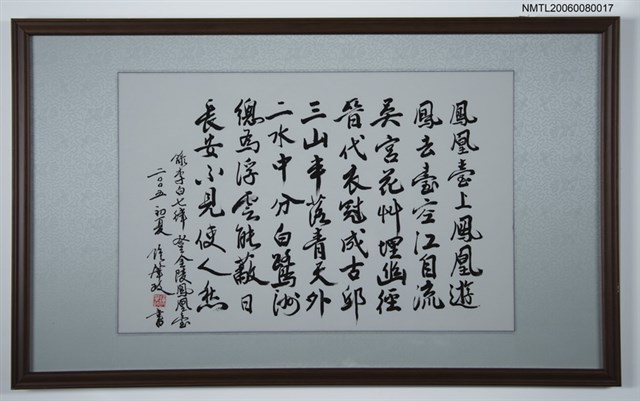 NMTL20060080017
鳳凰臺上鳳凰遊
鳳去臺空江自流
吳宮花草埋幽徑
晉代衣冠成古邱
三山半落青天外
二水中分白鷺洲
總為浮雲能蔽日
長安不見使人愁
錄李白七律登金陵鳳凰臺
二〇〇五初夏 書